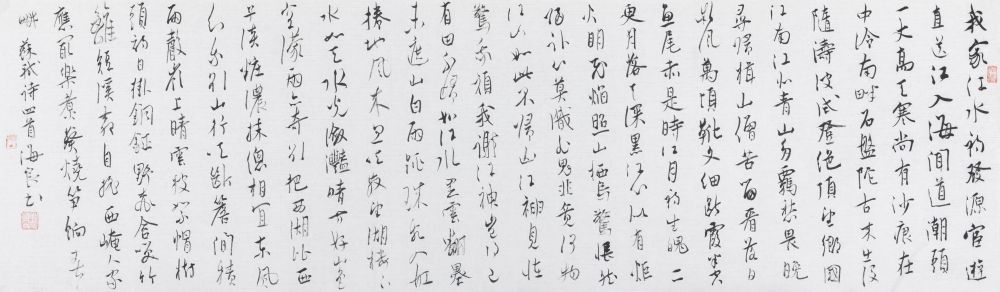 我家江水初發源宦遊
直送江入海聞道潮頭
一丈高天寒尚有沙痕在
中泠南畔石盤陀古來出沒
隨濤波試登絕頂望鄉國
江南江北青山多羈愁畏晚
尋歸楫山僧苦留看落日
微風萬頃靴文細斷霞半空
魚尾赤是時江月初生魄二
更月落天深黑江心似有炬
火明飛焰照山栖鳥驚悵然
歸臥心莫識鬼非竟何物
江山如此不歸山江神見怪
驚我頑我謝江神豈得已
有田不歸如江水黑雲翻墨
未遮山白雨跳珠亂入船
捲地風來忽吹散望湖樓下
水如天水光瀲灩晴方好山色
空濛雨亦奇把西湖比西
子淡粧濃抹總相宜東風
知我欲山行吹斷簷間積
雨聲嶺上晴雲披絮帽樹
頭初日掛銅鉦野桃含笑竹
籬短溪柳自搖西崦人家
應最樂煮葵燒筍餉春
蘇軾詩四首 海書